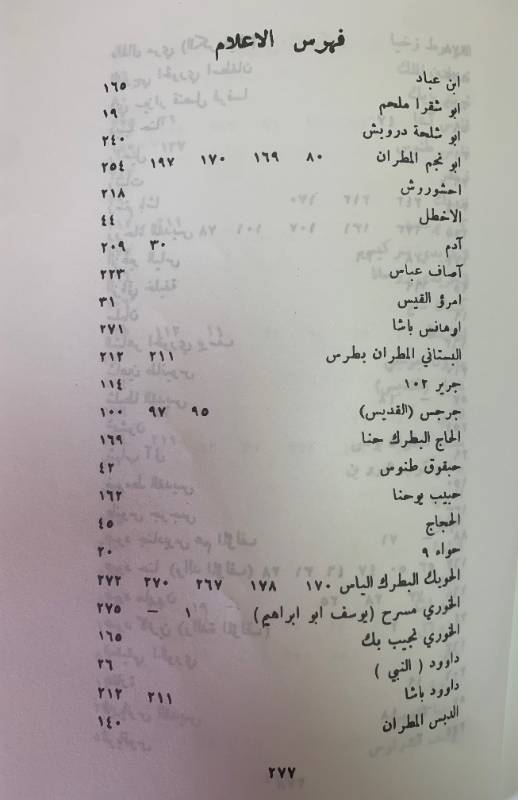 فهرس الاعلام
ابن عباد ١٦٥
ابو شقرا ملحم ١٩
ابو شلحة درويش ٢٤٠
ابو نجم المطران ٨٠ ١٦٩ ١٧٠ ١٩٧ ٢٥٤
احشوروش ٢١٨
الاخطل ٤٤
آدم ٣٠ ٢٠٩
آصاف عباس ٢٢٣
امرؤ القيس ٣١
اوهانس باشا ٢٧١
البستاني المطران بطرس ٢١١ ٢١٢
جرير ١٠٢ ١١٤
جرجس (القديس) ٩٥ ٩٧ ١٠٠
الحاج البطرك حنا ١٦٩
حبقوق طنوس ٤٢
حبيب يوحنا ١٦٢
الحجاج ٤٥
حواء ٩ ٢٠
الحويك البطرك الياس ١٧٠ ١٧٨ ٢٦٧ ٢٧٠ ٢٧٢
الخوري مسرح (يوسف ابو ابراهيم) ١ — ٢٧٥
الخوري نجيب بك ١٦٥
داوود ( النبي ) ٢٦
داوود باشا ٢١١ ٢١٢
الدبس المطران ١٤٠
٢٧٧